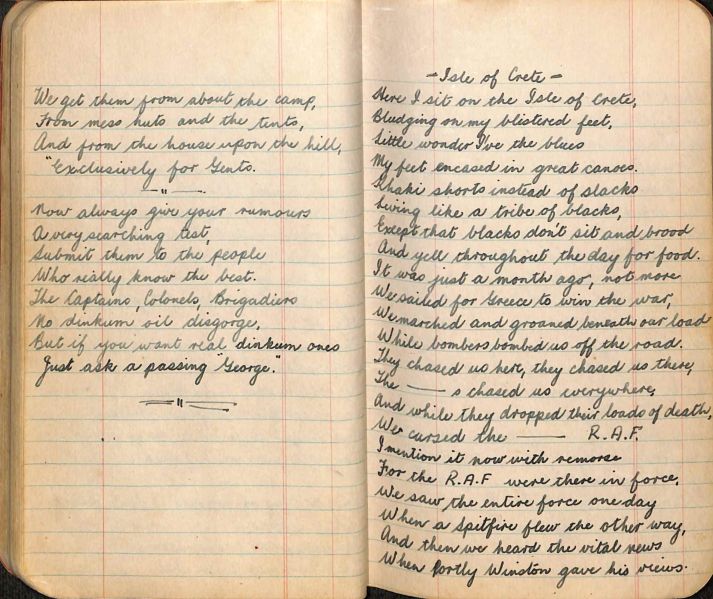 We get them from about the camp,
From mess huts and the tents,
And from the house upon the hill,
"Exclusively for Gents.
— " —
Now always give your rumours
A very searching test,
Submit them to the people
Who really know the best.
The Captains, Colonels, Brigadiers
No dinkum oil disgorge,
But if you want real dinkum ones
Just ask a passing "George".
— " —
- Isle of Crete -
Here I sit on the Isle of Crete,
Bludging on my blistered feet,
Little wonder I've the blues
My feet encased in great canoes.
Khaki shorts instead of slacks
Living like a tribe of blacks,
Except that blacks don't sit and brood
And yell throughout the day for food.
It was just a month ago, not more
We sailed for Greece to win the war,
We marched and groaned beneath our load
While bombers bombed us off the road.
They chased us here, they chased us there,
The —— s chased us everywhere,
And while they dropped their loads of death,
We cursed the —— R.A.F.
I mention it now with remorse
For the R.A.F were there in force,
We saw the entire force one day
When a Spitfire flew the other way,
And then we heard the vital news
When Portly Winston gave his views.